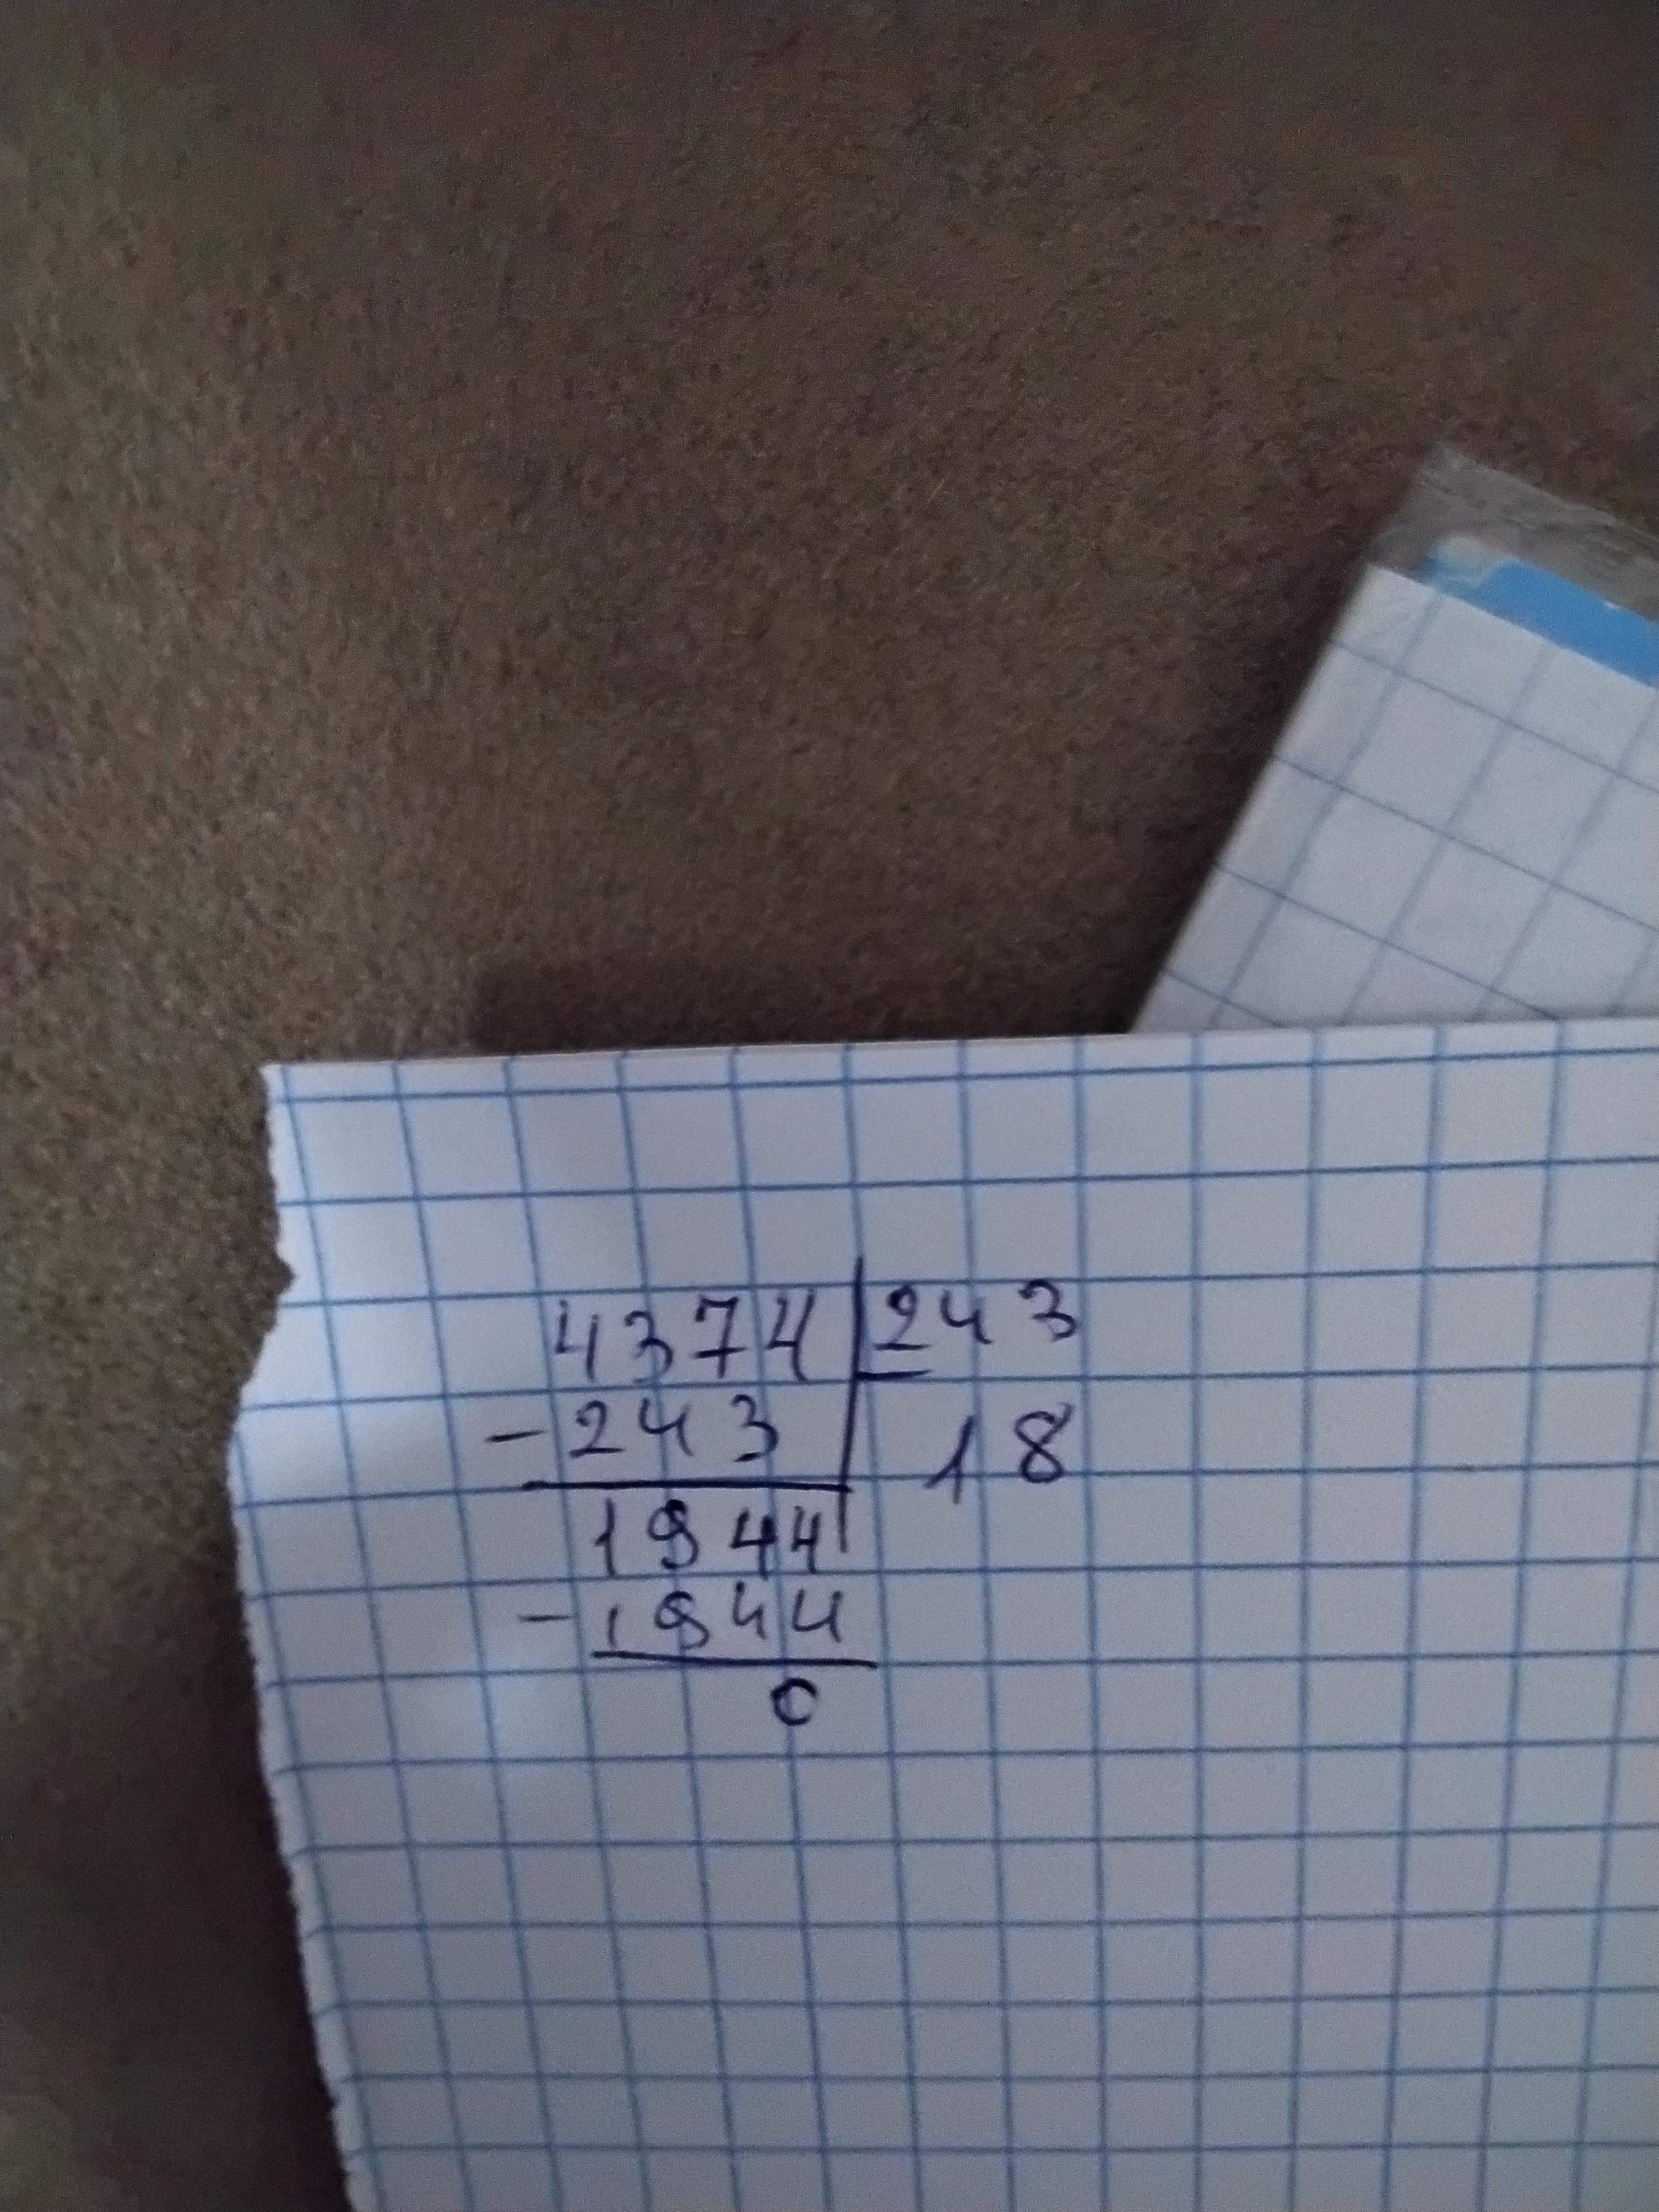 4374 243
-243 18
1944
-1944
0